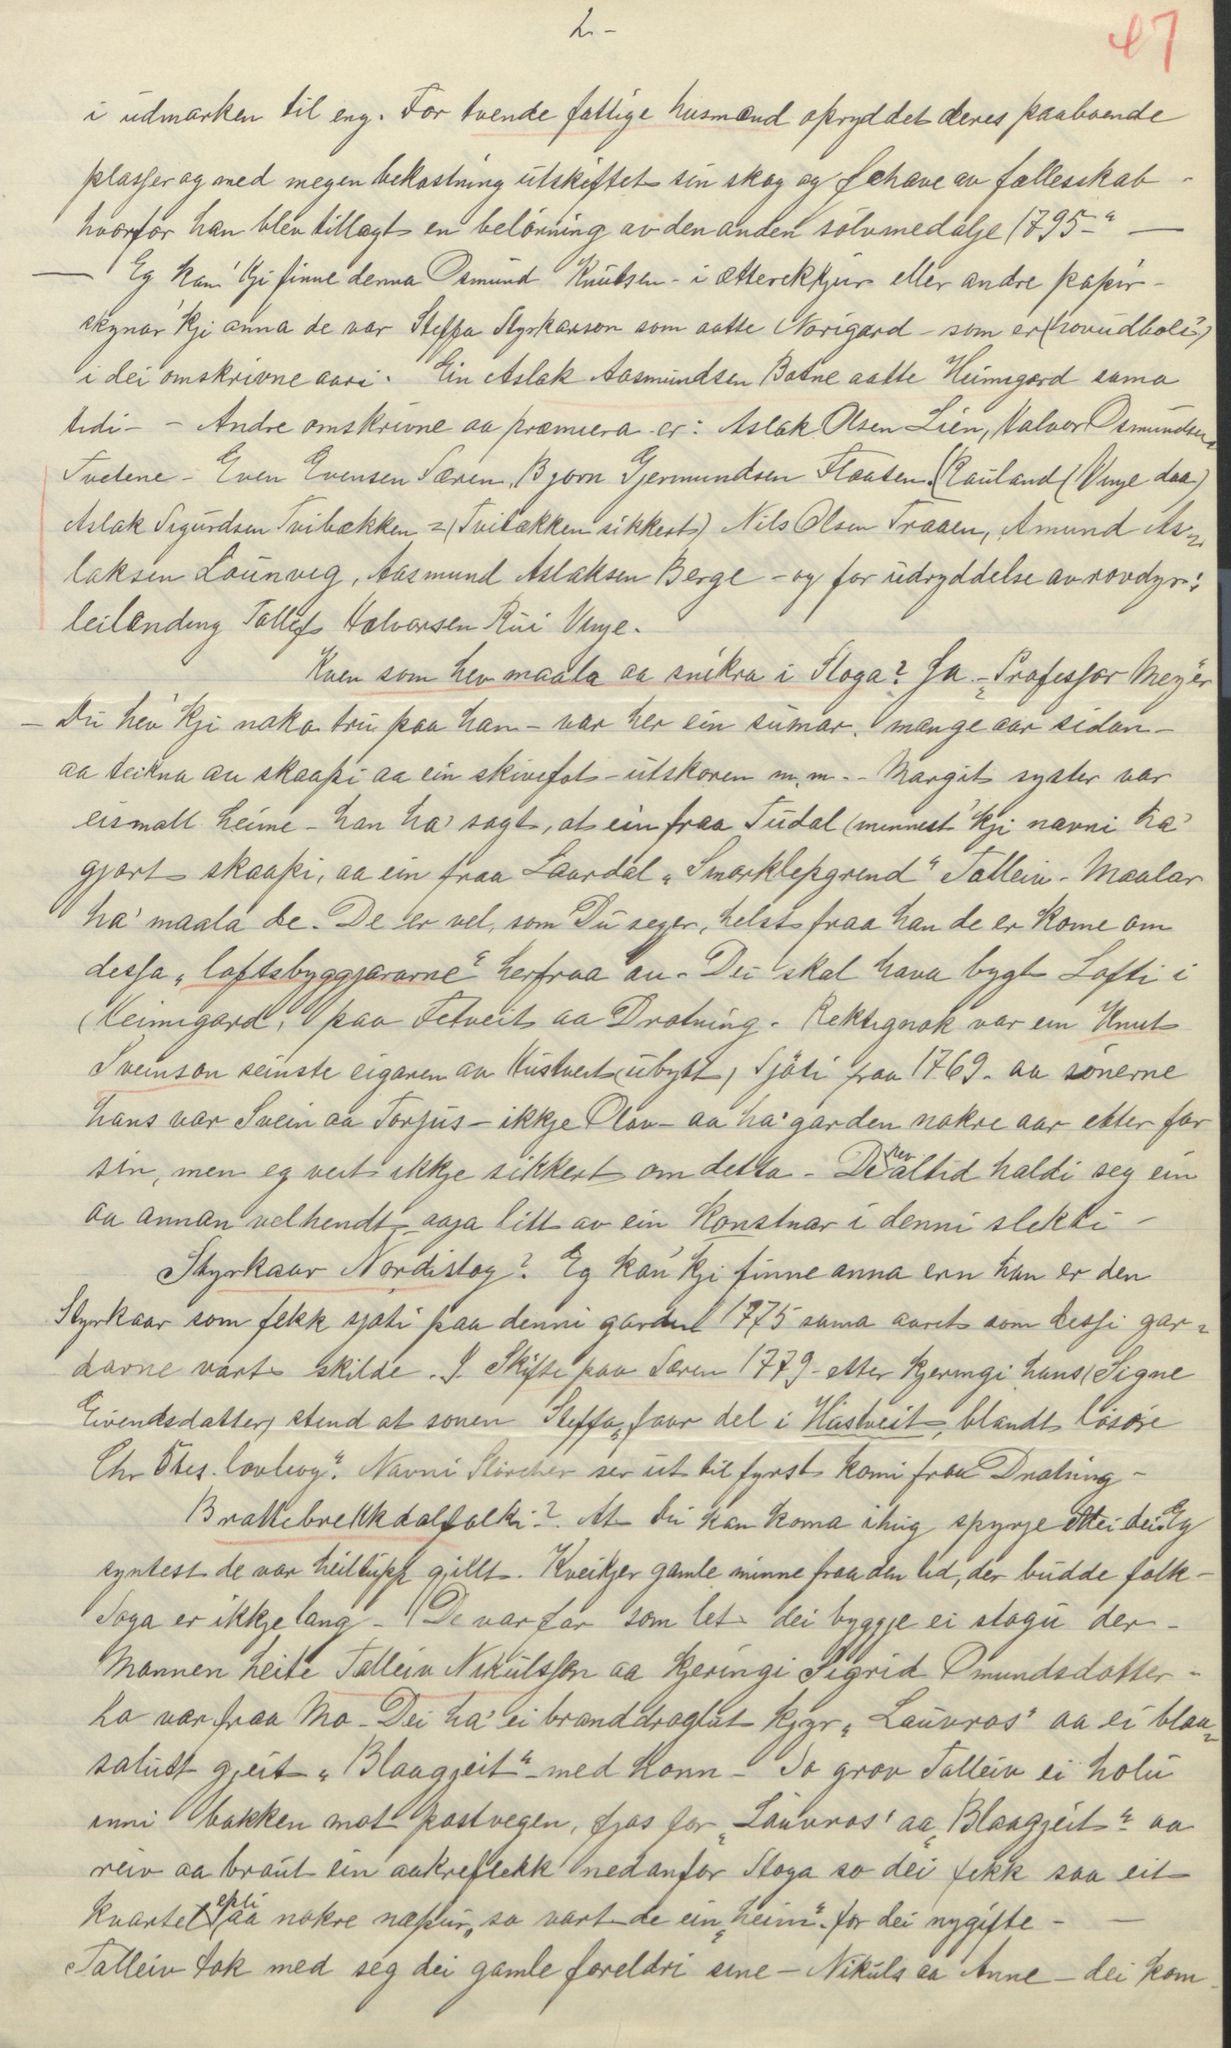 2 -
47
i udmarken til eng. For tvende fattige husmænd opryddet deres paaboende
plasser og med megen bekostning utskiftet sin skog og fehave av fællesskab -
hvorfor han blev tillagt en belönning av den anden sölvmedalje 1795-" —
— Eg kan' kji finne denna Osmund Knutsen - i ætterekkjur eller andre papir -
skynar' kji anna de var Steffa Styrkarson som aatte Norigard - som er (hovudbole?)
i dei omskrivne aari. Ein Aslak Aasmundsen Botne aatte Heimigard sama
tidi - - Andre omskrivne aa præmiera er: Aslak Olsen Lien, Halvor Osmundsen
Tvetene - Even Evensen Særen, Bjørn Gjermundsen Flaaten (Rauland (Vinje daa)
Aslak Sigurdsen Tvibækken = (Tvitækken sikkert) Nils Olsen Traaen, Amund As-
laksen Lounveg, Aasmund Aslaksen Berge - og for udryddelse av rovdyr:
leilænding Tallefs Halvorsen Rui Vinje.
Kven som hev maala aa snikra i Stoga? Ja - Professor Meyer
- Du hev' kji noko tru paa han - var her ein sumar, mange aar sidan -
aa teikna au skaapi aa ein skivefot - utskoren m.m. - Margit syster var
eismall heime - han ha' sagt, at ein fraa Tudal (minnest kji navni ha'
gjort skaapi, aa ein fraa Laardal "Smorklepgrend" Talleiv - Maalar
ha' maala de. De er vel, som Du seger, helst fraa han de er kome om
dessa "loftsbyggjararne" herfraa au. Dei skal hava bygt Lofti i
(Heimigard, paa Fetveit aa Dratning. Rektignok var ein Knut
Sveinson seinste eigaren av Hustveit (ubygt) Sjöti fraa 1769 - aa sönerne
hans var Svein aa Torjus - ikkje Olav - aa ha' garden nokre aar etter far
sin, men eg veit ikkje sikkert om detta - De hev altid haldi seg ein
aa annan velhendt - aaja litt av ein konstnar i denni slekti -
Styrkaar Nordistog? Eg kan' kji finne anna enn han er den
Styrkaar som fekk sjöti paa denni garden 1775 sama aaret som dessi gar-
darne vart skilde. I Skifte paa Særen 1779 - etter kjeringi hans (Signe
Eivendsdatter) stend at sonen Steffa, faar del i Hustveit, blandt lösöre
Chr 5tes lovbog". Navni Störcher ser ut til fyrst komi fraa Dratning -
Brattebrekkdalfolki? At du kan koma ihug spyrje ettei dei. Eg
syntest de var heiltupp gillt. Kveikjer gamle minne fraa den tid, der budde folk -
Soga er ikkje lang - De var far som let dei byggje ei stogu der -
Mannen heite Talleiv Nikulsson aa kjeringi Sigrid Omundsdotter -
ho var fraa Mo - Dei ha' ei branddroglut kjyr "Lauvros" aa ei blaa-
salutt gjeit "Blaagjeit" - med honn - So grov Talleiv ei holu
inni bakken mot postvegen, fjos for "Lauvros' aa "Blaagjeit" aa
reiv aa braut ein aakreflekk nedanfor Stoga so dei fekk saa eit
kvartel epli aa nokre næpur, so vart de ein "heim" for dei nygifte - —
Talleiv tok med seg dei gamle foreldri sine - Nikuls aa Anne - dei kom